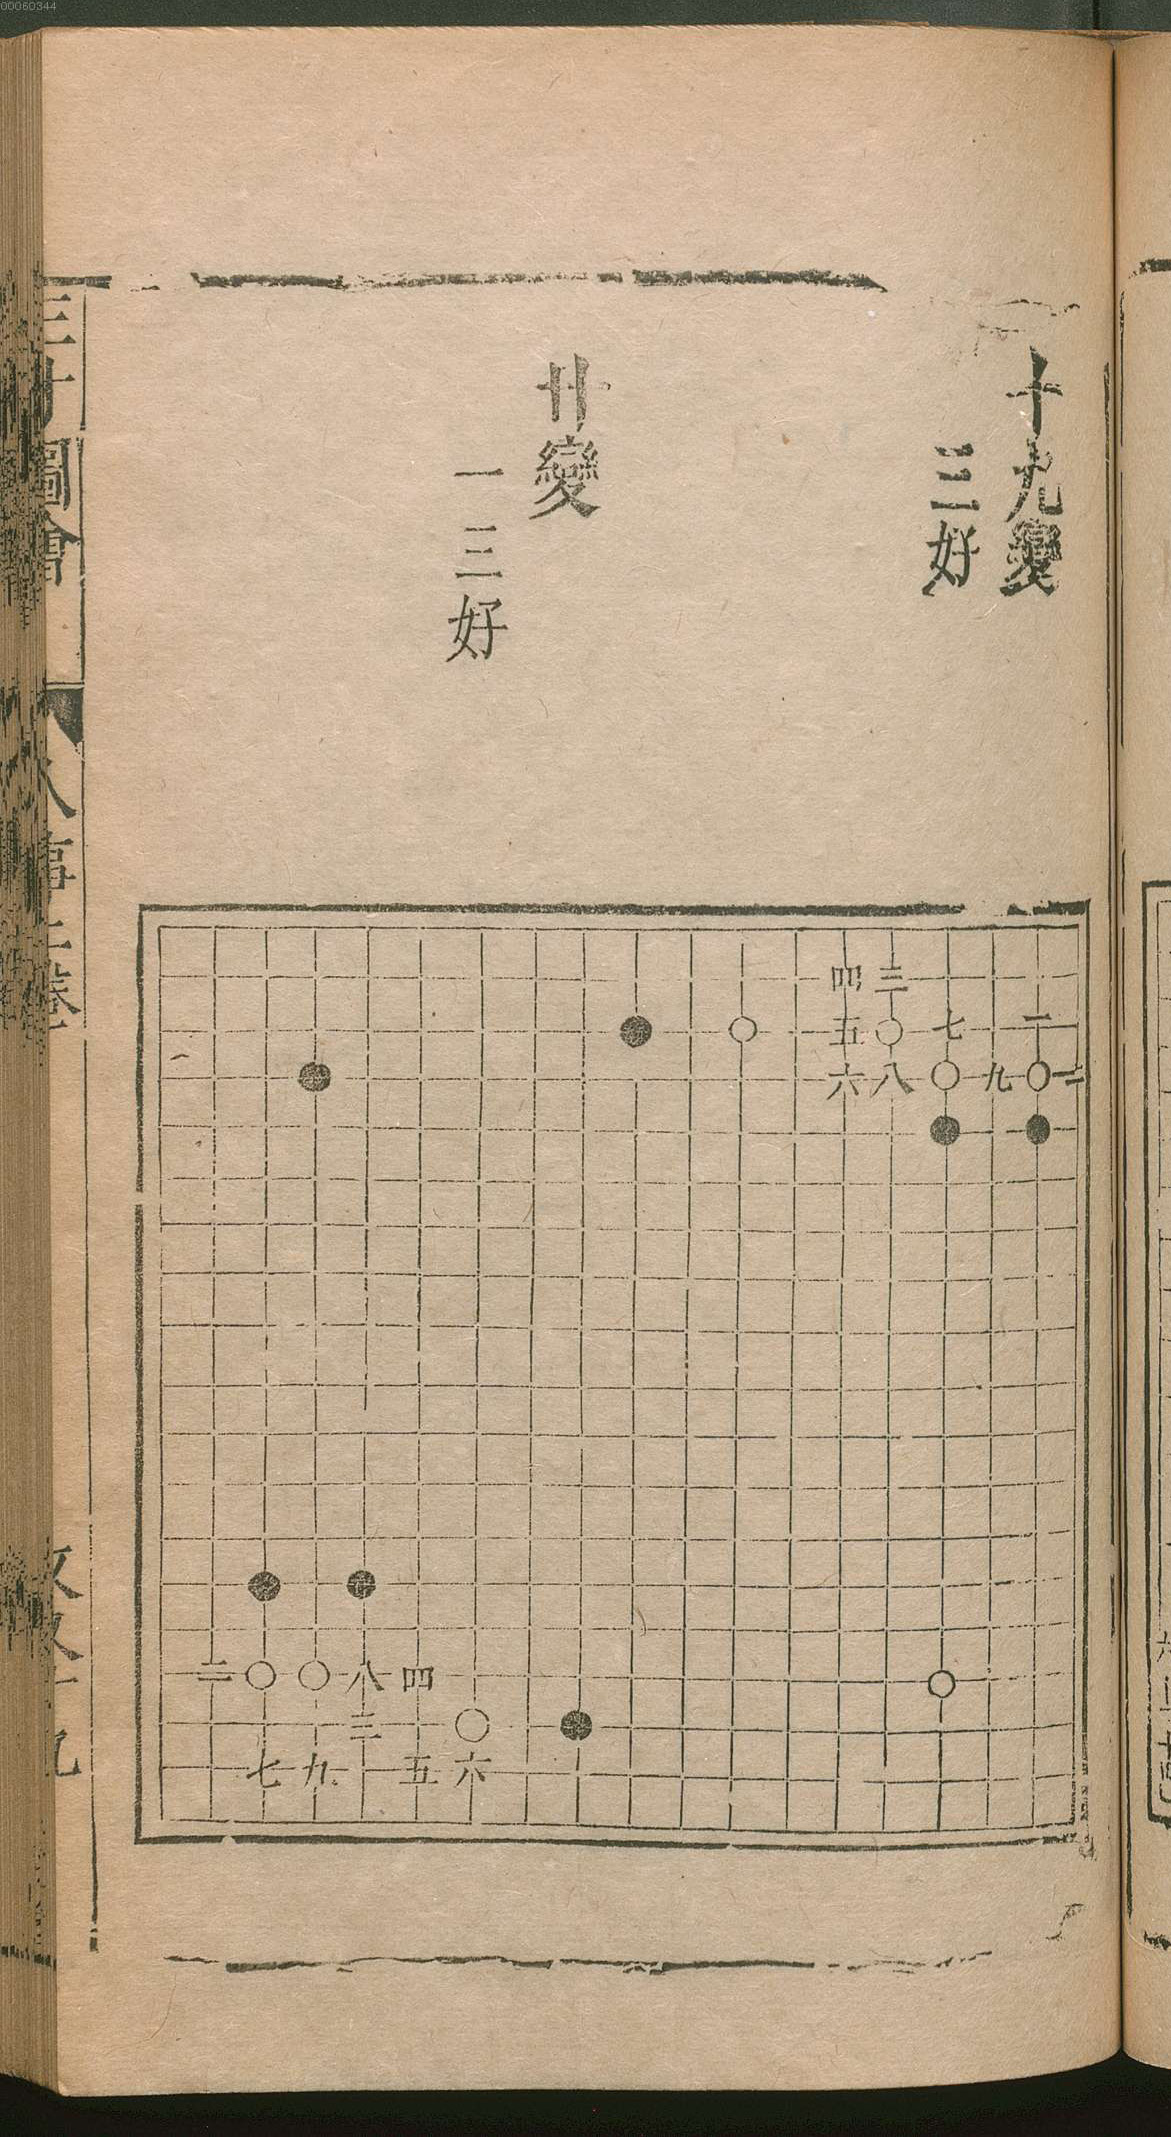 00060344
十九變
三好
廿變
一三好
四 三
五 七 一
六 八 九 二
二 八 四
三
七 九 五 六
三才圖會
人事三卷